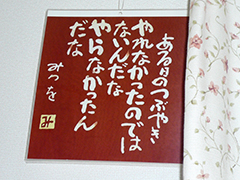 ある日のつぶやき
やれなかったのでは
ないんだな
やらなかったん
だな
みつを
み